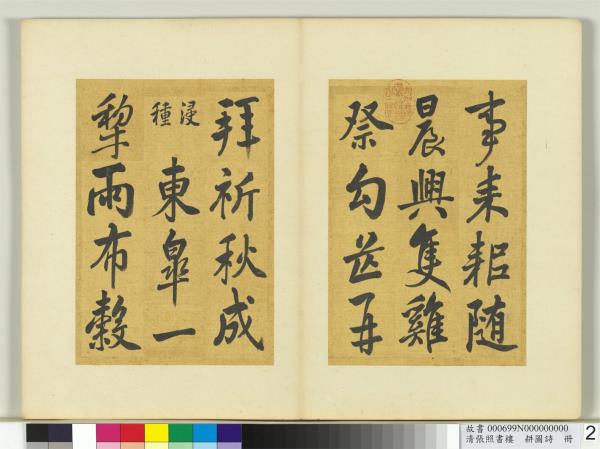 事耒耜随
晨興隻雞
祭勾芒再
拜祈秋成
浸種
東皐一
犁雨布穀
故書 000699N000000000
清張照書樓　耕圖詩　冊
2